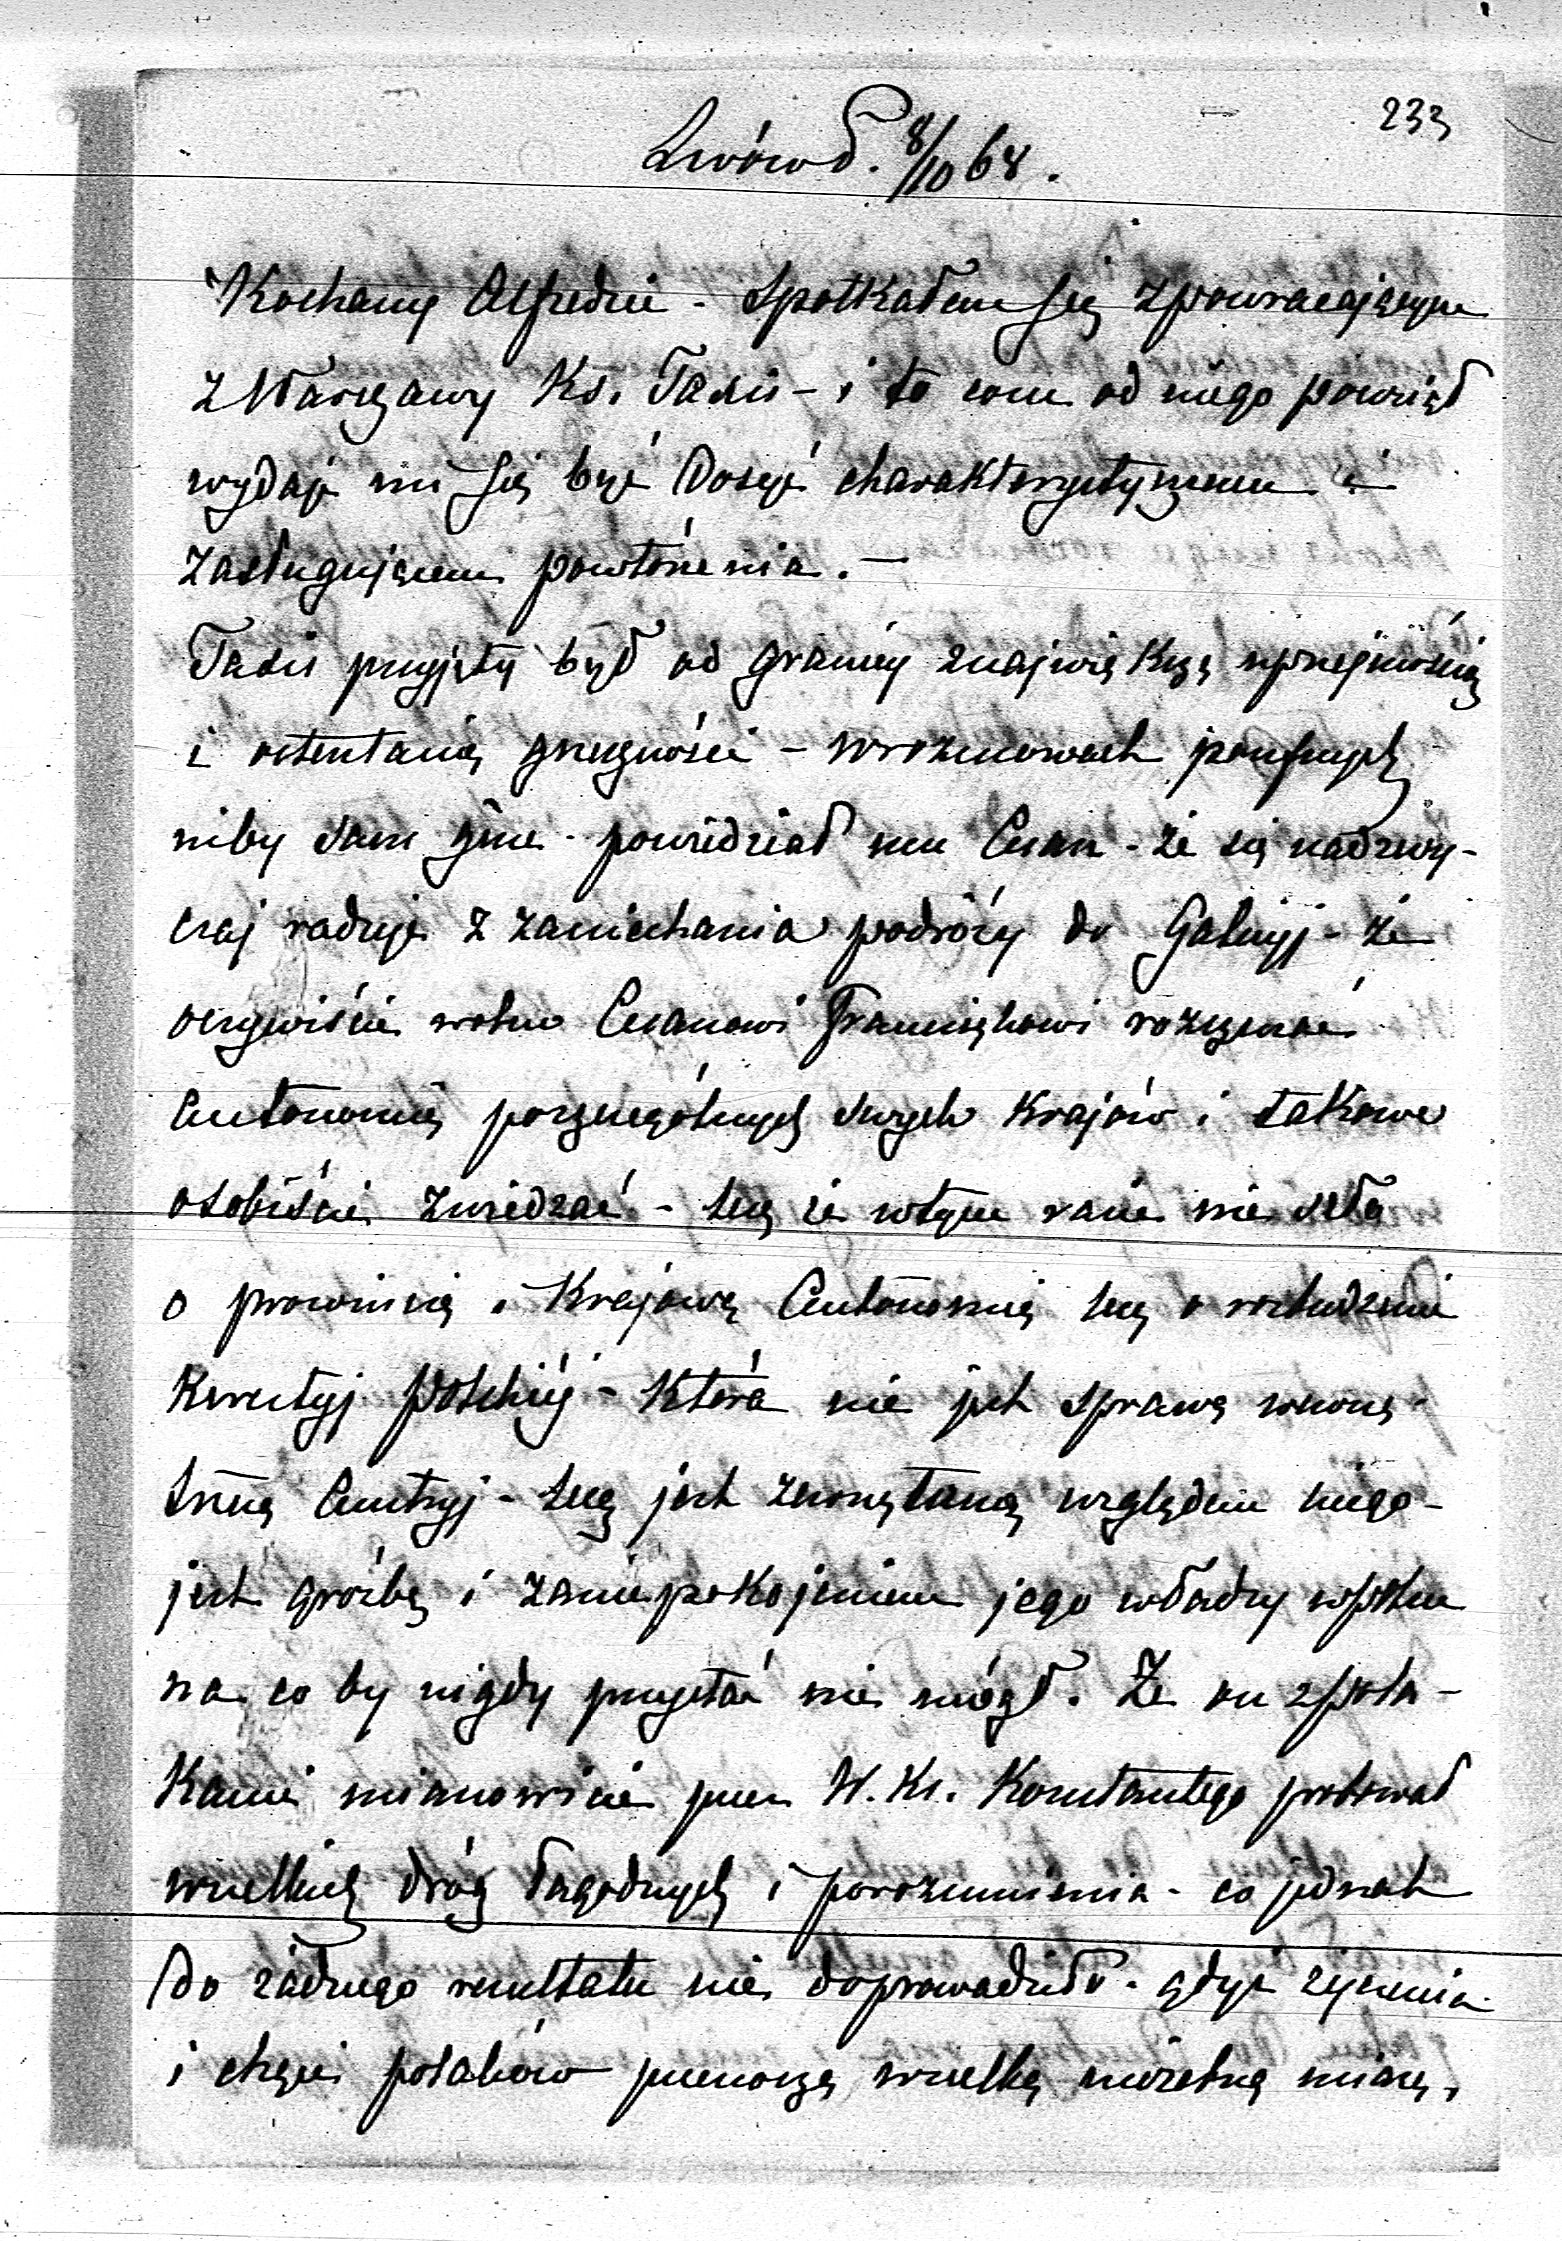 233
Lwów d. 8/10 68.
Kochany Alfredzie - Spotkałem się z powracającym
z Warszawy Ks. Taxis - i to com od niego powziął
wydaje mi się być dosyć charakterystycznem i
zasługującem powtórzenia. -
Taxis przyjęty był od granicy z największą uprzejmością
i ostentacią grzeczności - w rozmowach poufnych
niby sam powiedział mu Cesarz - że się nadzwy-
czaj raduje z zaniechania podróży do Galicyj - że
oczywiście wolno Cesarzowi Franciszkowi
Autonomię poszczególnych swych Krajów i takowe
osobiście zwiedzać - lecz że w tym razie nie szło
o prowincią i Krajową Autonomię lecz o rozbudzenie
Kwestyj Polskiéj - Która nie jest sprawą wewnę-
trzną Austryj - lecz jest zewnętrzną względem niego -
jest groźbą i zaniepokojeniem jego władzy w Polsce
na co by nigdy przystać nie mógł. Że on z Pola-
Kami mianowicie przez W. Ks. Konstantego probował
wszelkich dróg łagodnych i porozumienia - co jednak
do żadnego rezultatu nie doprowadziło - gdyż życzenia
i chęci polaków przenoszą wszelką możebną miarę,